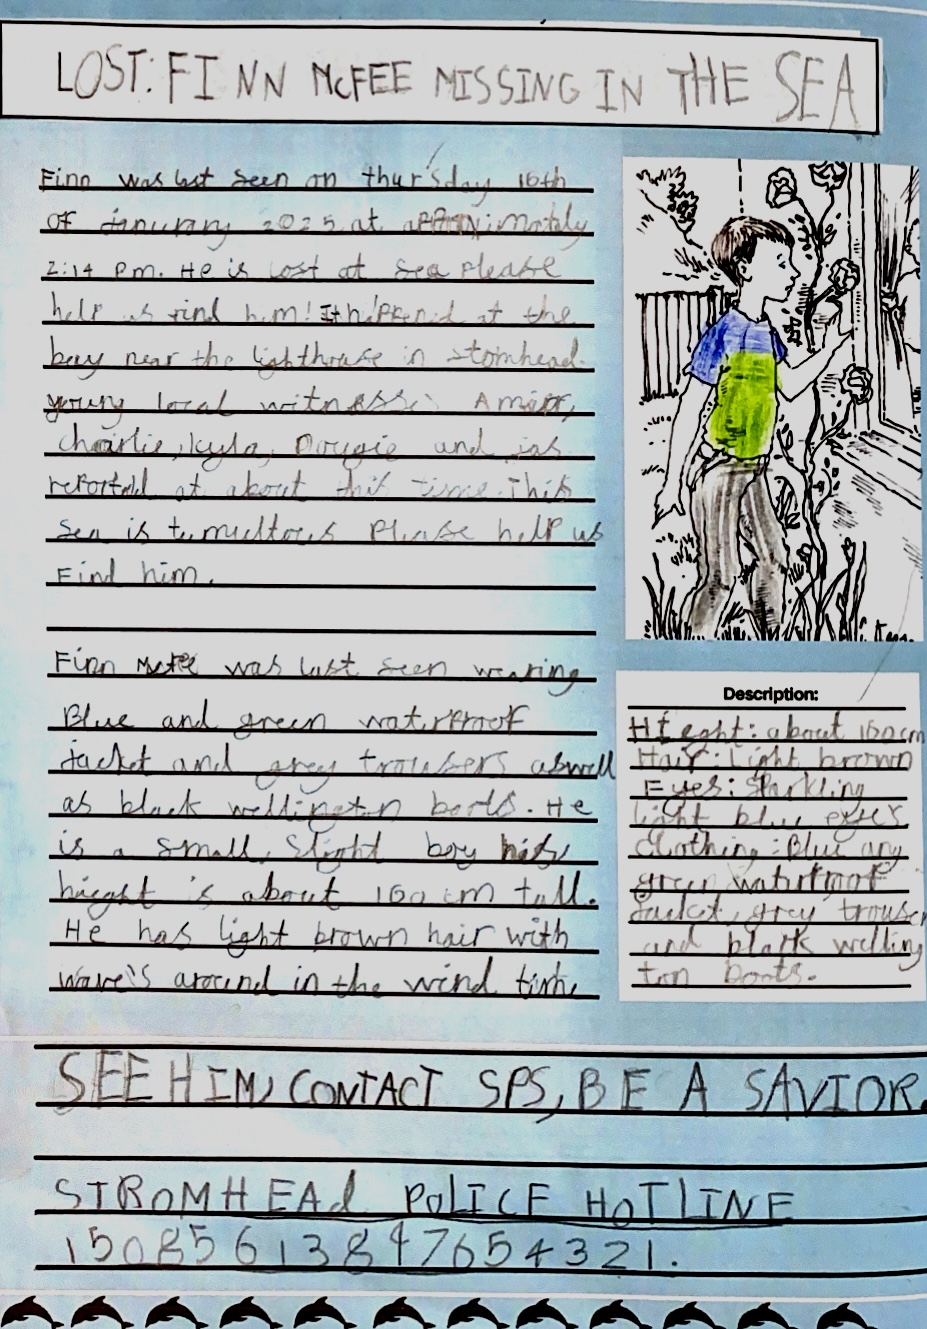 LOST: FINN McFEE MISSING IN THE SEA
Finn was last seen on thursday 16th
of janurary 2025 at
2:14 Pm. He is lost at sea Please
help us find him! It happened at the
bay near the lighthouse in Stomhead.
young local witnesses
Charlie, Kyla, Dougie and jas
reported at about this time. This
sea is tumultous Please help us
Find him.
Finn McFee was last seen wearing
Blue and green waterproof
Jacket and grey trousers aswell
as black wellington boots. He
is a small, slight boy his
hieght is about 160 cm tall.
He has light brown hair with
wave's around in the wind time
Description:
Hieght: about 160cm
Hair: Light brown
Eyes: Sparkling
light blue eyes
Clothing: Blue any
green waterproof
Jacket, grey trouser
and black welling
ton boots.
SEE HIM, CONTACT SPS, BE A SAVIOR.
STROMHEAd POLICE HOTLINE
15085613847654321.